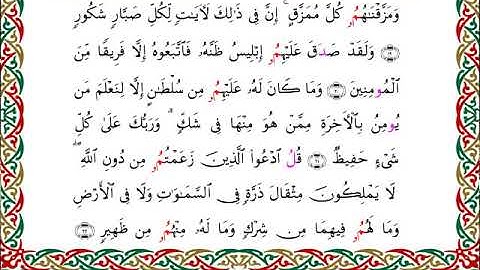 وَمَزَّقْنَٰهُمُۥ كُلَّ مُمَزَّقٍۚ إِنَّ فِى ذَٰلِكَ لَأٓيَٰتٖ لِّكُلِّ صَبَّارٖ شَكُورٖ
۝١٩ وَلَقَدْ صَدَقَ عَلَيْهِمُۥٓ إِبْلِيسُ ظَنَّهُۥ فَٱتَّبَعُوهُ إِلَّا فَرِيقٗا مِّنَ
ٱلْمُومِنِينَ ۝٢٠ وَمَا كَانَ لَهُۥ عَلَيْهِمُۥ مِن سُلْطَٰنٍ إِلَّا لِنَعْلَمَ مَن
يُومِنُ بِٱلْأٓخِرَةِ مِمَّنْ هُوَ مِنْهَا فِى شَكّٖۗ وَرَبُّكَ عَلَىٰ كُلِّ
شَىْءٍ حَفِيظٞ ۝٢١ قُلُ ٱدْعُوا۟ ٱلَّذِينَ زَعَمْتُمُۥ مِن دُونِ ٱللَّهِۖ
لَا يَمْلِكُونَ مِثْقَالَ ذَرَّةٖ فِى ٱلسَّمَٰوَٰتِ وَلَا فِى ٱلْأَرْضِ
وَمَا لَهُمُۥ فِيهِمَا مِن شِرْكٖ وَمَا لَهُۥ مِنْهُمُۥ مِن ظَهِيرٖ ۝٢٢